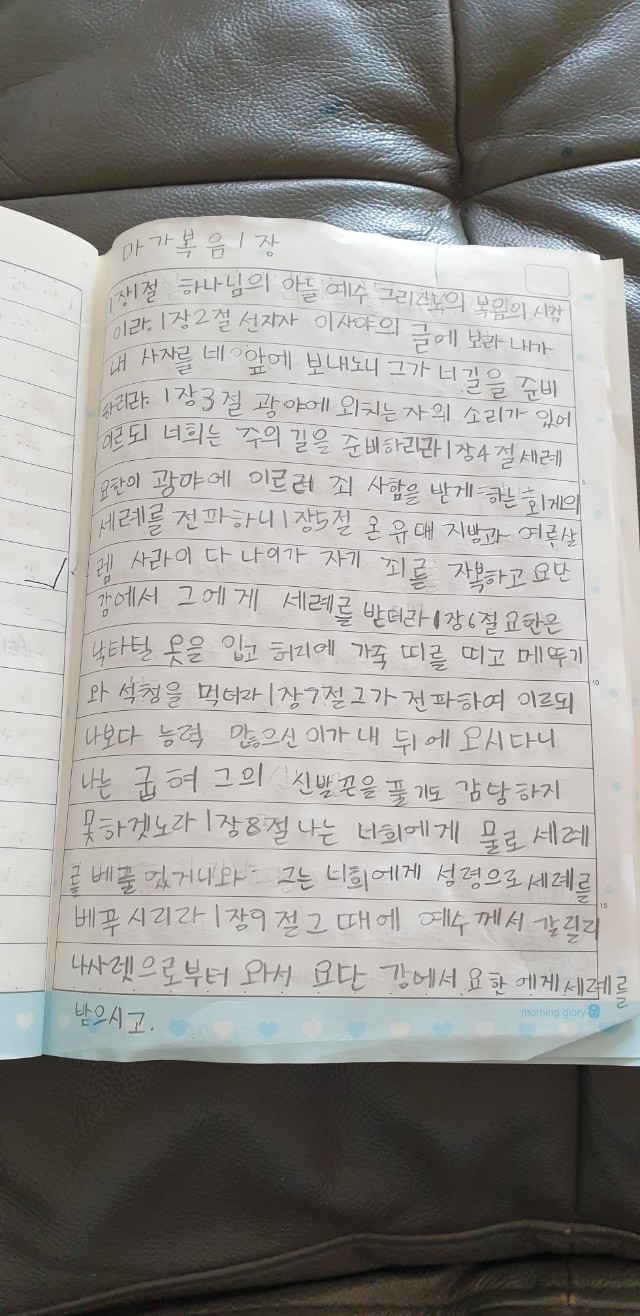 마가복음 1장
1장1절 하나님의 아들 예수 그리스도의 복음의 시작
이라. 1장2절 선지자 이사야의 글에 보라 내가
내 사자를 네 앞에 보내노니 그가 너 길을 준비
하리라. 1장3절 광야에 외치는 자의 소리가 있어
이르되 너희는 주의 길을 준비하라라 1장4절 세례
요한이 광야에 이르러 죄 사함을 받게 하는 회게의
세례를 전파하니 1장5절 온 유대 지방과 여루살
렘 사라이 다 나아가 자기 죄를 자복하고 요단
강에서 그에게 세례를 받더라 1장6절 요한은
낙타털 옷을 입고 허리에 가죽 띠를 띠고 메뚜기
와 석청을 먹더라 1장7절 그가 전파하여 이르되
나보다 능력 많으신 이가 내 뒤에 오시다니
나는 굽혀 그의 신발끈을 풀기도 감당하지
못하겟노라 1장8절 나는 너희에게 물로 세례
를 베풀었거니와 그는 너희에게 성령으로 세례를
베푸시리라 1장9절 그 때에 예수께서 갈릴리
나사렛으로부터 와서 요단 강에서 요한에게 세례를
받으시고.
morning glory
5
10
15